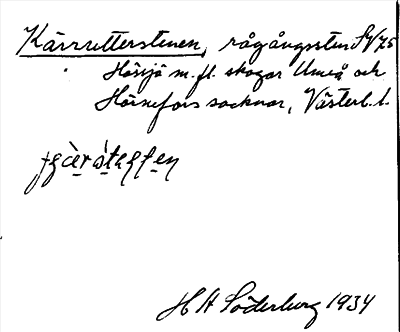 Kärrutterstenen, rågångssten SV 75
Hössjö m. fl. skogar Umeå och
Hörnefors socknar, Västerb. l.
H H Söderburg 1934